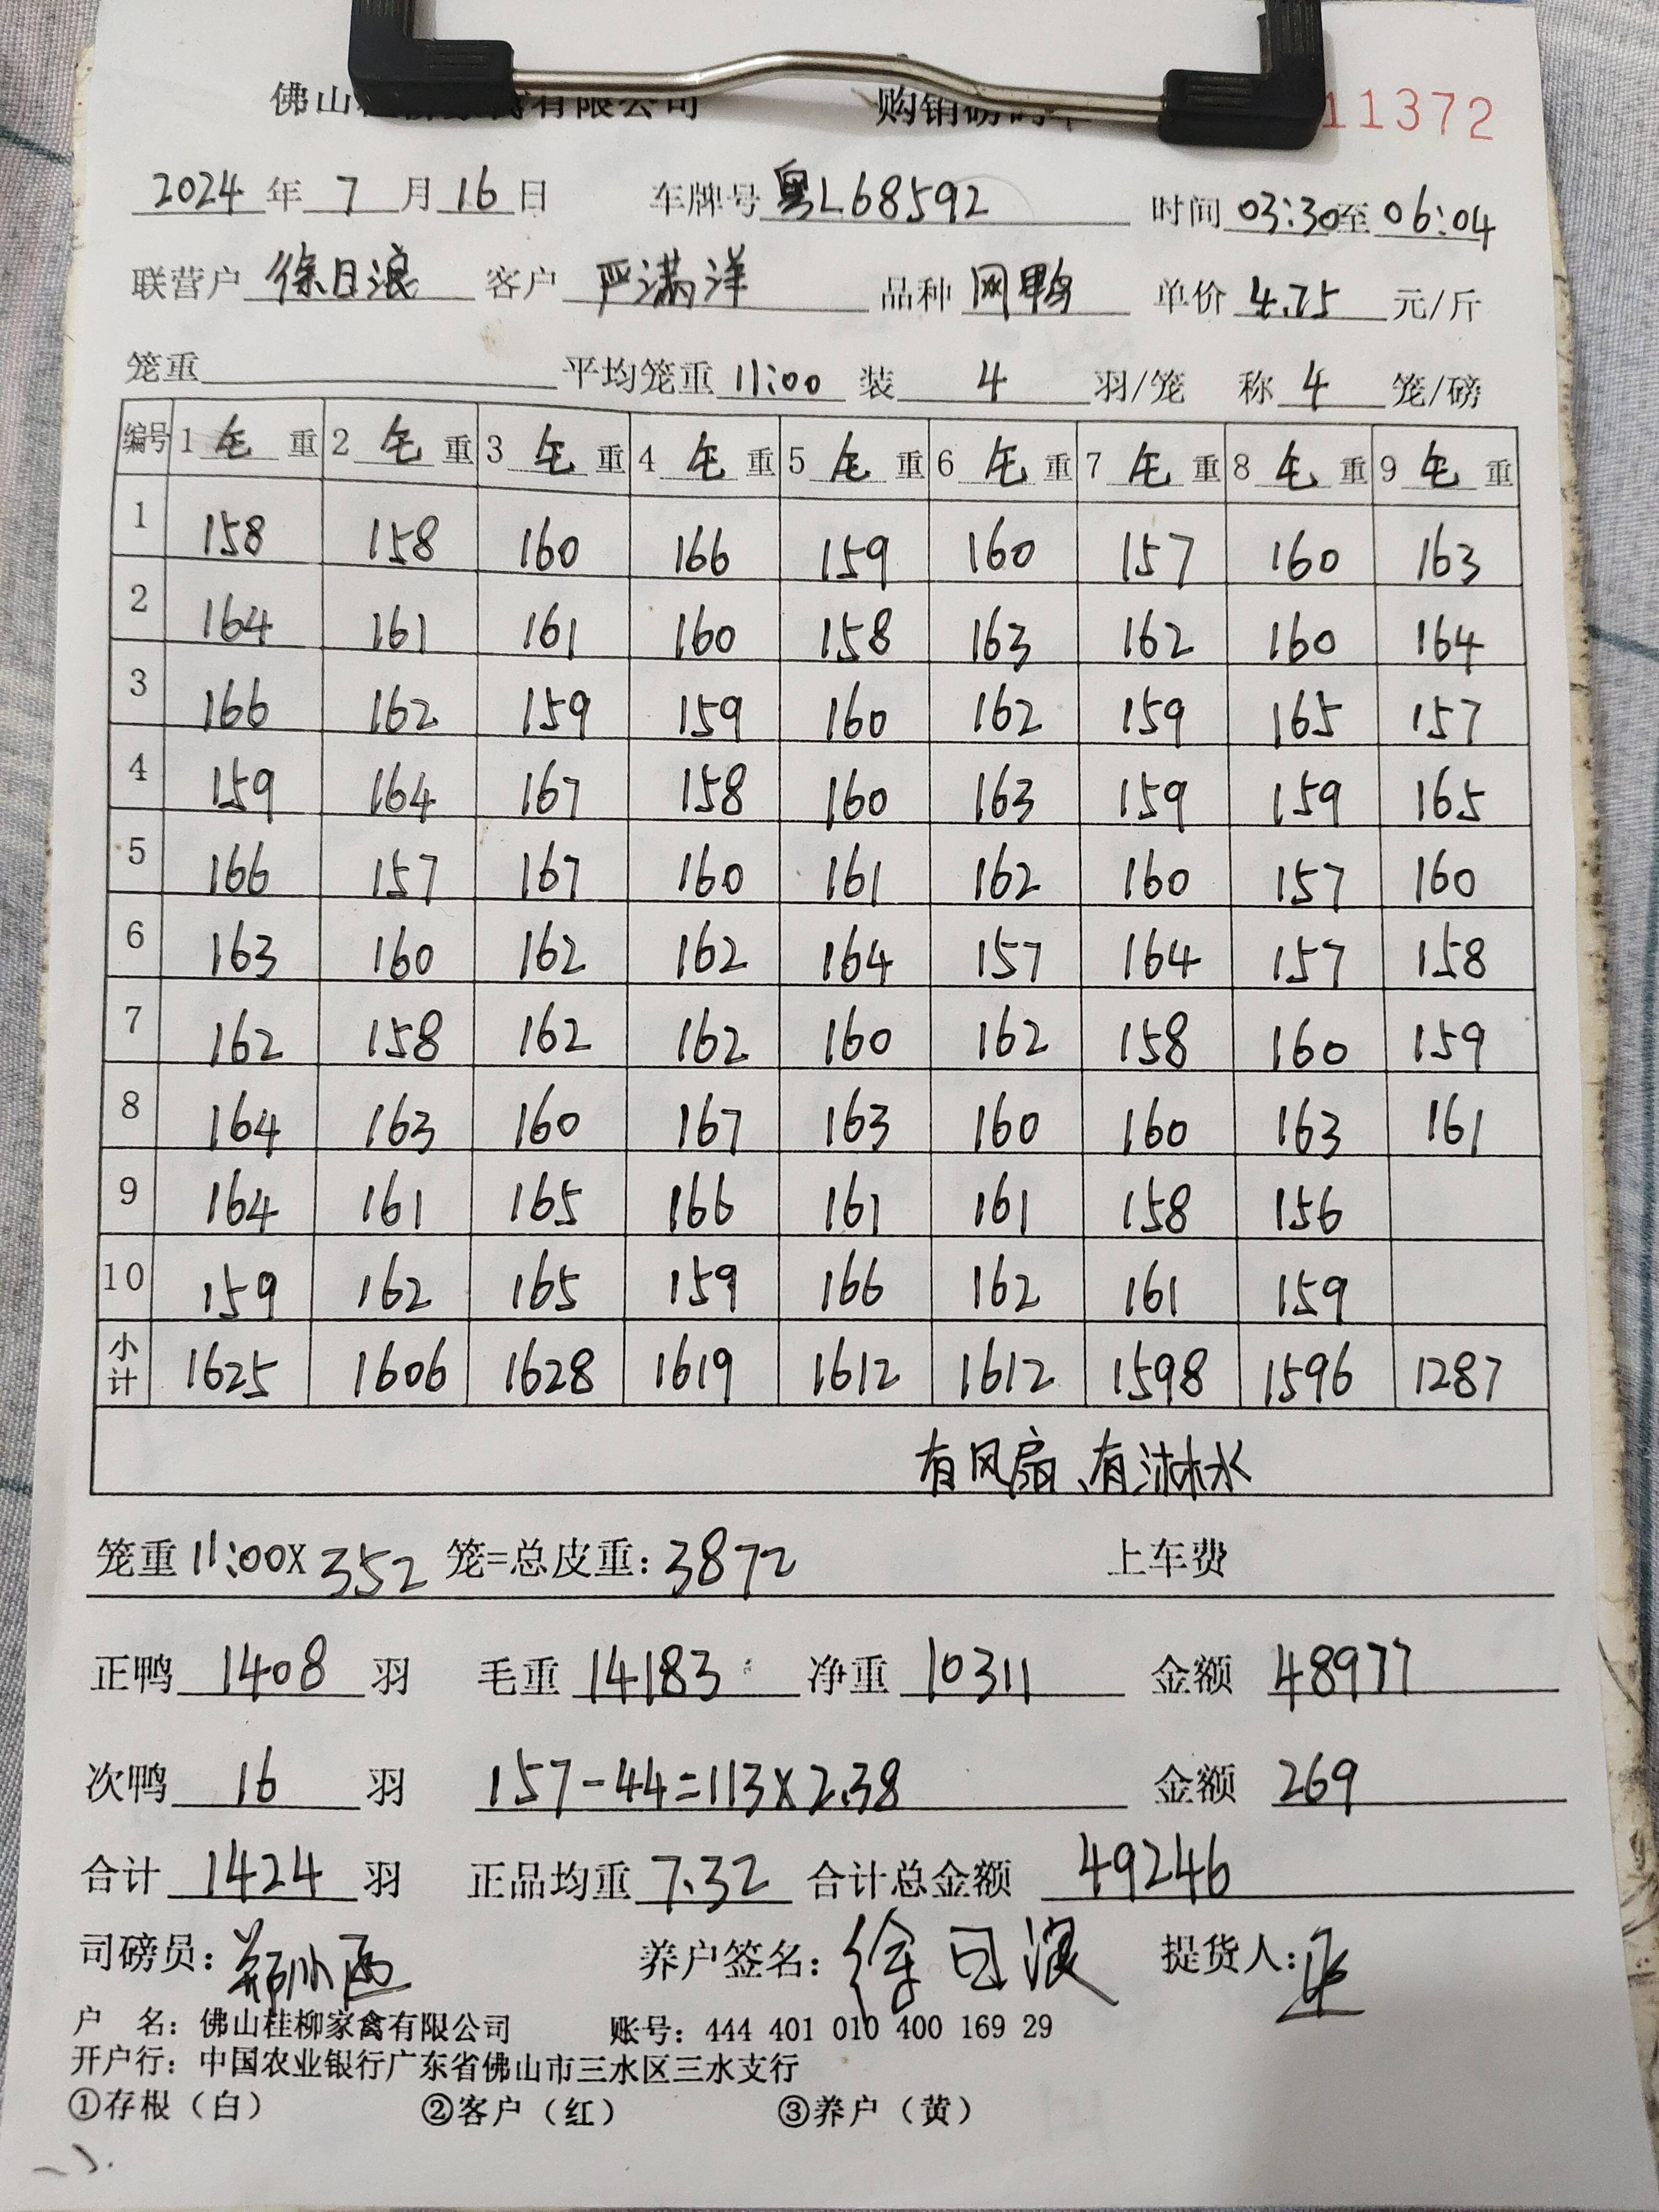 佛山桂柳家禽有限公司 购销磅码单 11372
2024 年 7 月 16 日 车牌号 粤L68592 时间 03:30 至 06:04
联营户 徐日浪 客户 严满洋 品种 网鸭 单价 4.75 元/斤
笼重 平均笼重 11:00 装 4 羽/笼 称 4 笼/磅
编号 1 毛 重 2 毛 重 3 毛 重 4 毛 重 5 毛 重 6 毛 重 7 毛 重 8 毛 重 9 毛 重
1 158 158 160 166 159 160 157 160 163
2 164 161 161 160 158 163 162 160 164
3 166 162 159 159 160 162 159 165 157
4 159 164 167 158 160 163 159 159 165
5 166 157 167 160 161 162 160 157 160
6 163 160 162 162 164 157 164 157 158
7 162 158 162 162 160 162 158 160 159
8 164 163 160 167 163 160 160 163 161
9 164 161 165 166 161 161 158 156
10 159 162 165 159 166 162 161 159
小计 1625 1606 1628 1619 1612 1612 1598 1596 1287
有风扇、有淋水
笼重 11:00X 352 笼=总皮重: 3872 上车费
正鸭 1408 羽 毛重 14183 净重 10311 金额 48977
次鸭 16 羽 157-44=113X2.38 金额 269
合计 1424 羽 正品均重 7.32 合计总金额 49246
司磅员: 养户签名: 徐日浪 提货人:
户 名: 佛山桂柳家禽有限公司 账号: 444 401 010 400 169 29
开户行: 中国农业银行广东省佛山市三水区三水支行
①存根（白） ②客户（红） ③养户（黄）